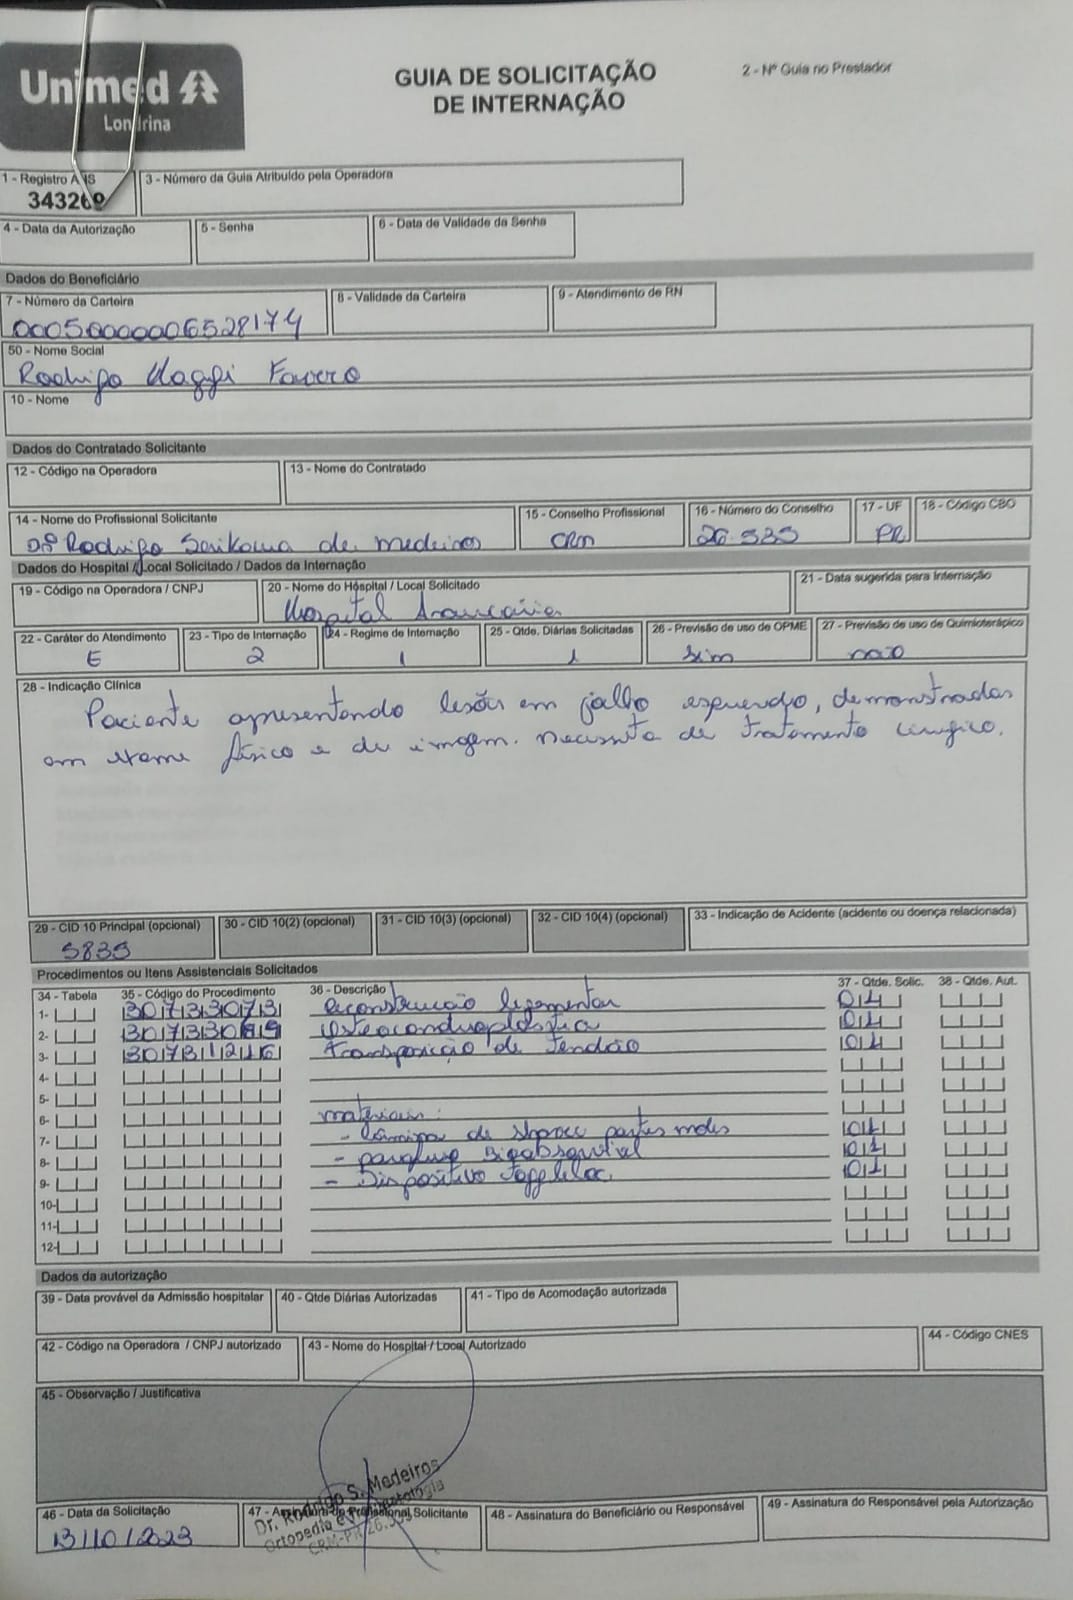 Unimed
Londrina
GUIA DE SOLICITAÇÃO
DE INTERNAÇÃO
2 - Nº Guia no Prestador
1 - Registro ANS
343269
3 - Número da Guia Atribuído pela Operadora
4 - Data da Autorização
5 - Senha
6 - Data de Validade da Senha
Dados do Beneficiário
7 - Número da Carteira
8 - Validade da Carteira
9 - Atendimento de RN
00050000006528174
50 - Nome Social
Rodrigo Favero
10 - Nome
Dados do Contratado Solicitante
12 - Código na Operadora
13 - Nome do Contratado
14 - Nome do Profissional Solicitante
15 - Conselho Profissional
16 - Número do Conselho
17 - UF
18 - Código CBO
Drº Rodrigo Serikawa de Medeiros
CRM
26.535
PR
Dados do Hospital / Local Solicitado / Dados da Internação
19 - Código na Operadora / CNPJ
20 - Nome do Hospital / Local Solicitado
21 - Data sugerida para Internação
Hospital Araucária
22 - Caráter do Atendimento
23 - Tipo de Internação
24 - Regime de Internação
25 - Qtde. Diárias Solicitadas
26 - Previsão de uso de OPME
27 - Previsão de uso de Quimioterápico
E
2
1
1
sim
não
28 - Indicação Clínica
Paciente apresentando lesões em joelho esquerdo, demonstradas
em exame físico e de imagem. Necessita de tratamento cirurgico.
29 - CID 10 Principal (opcional)
30 - CID 10(2) (opcional)
31 - CID 10(3) (opcional)
32 - CID 10(4) (opcional)
33 - Indicação de Acidente (acidente ou doença relacionada)
S835
Procedimentos ou Itens Assistenciais Solicitados
34 - Tabela
35 - Código do Procedimento
36 - Descrição
37 - Qtde. Solic.
38 - Qtde. Aut.
1- 30733073 Reconstrução ligamentar 01
2- Osteocondroplastia 01
3- 30731216 Transposição de Tendão 01
4-
5-
6- materiais:
7- - Lâmina de shaver partes moles 01
8- - parafuso Bioabsorvível 01
9- - Dispositivo Toggleloc. 01
10-
11-
12-
Dados da autorização
39 - Data provável da Admissão hospitalar
40 - Qtde Diárias Autorizadas
41 - Tipo de Acomodação autorizada
42 - Código na Operadora / CNPJ autorizado
43 - Nome do Hospital / Local Autorizado
44 - Código CNES
45 - Observação / Justificativa
46 - Data da Solicitação
13/10/2023
47 - Assinatura do Profissional Solicitante
Dr. Rodrigo S. Medeiros
Ortopedia e Traumatologia
CRM-PR 26.535
48 - Assinatura do Beneficiário ou Responsável
49 - Assinatura do Responsável pela Autorização